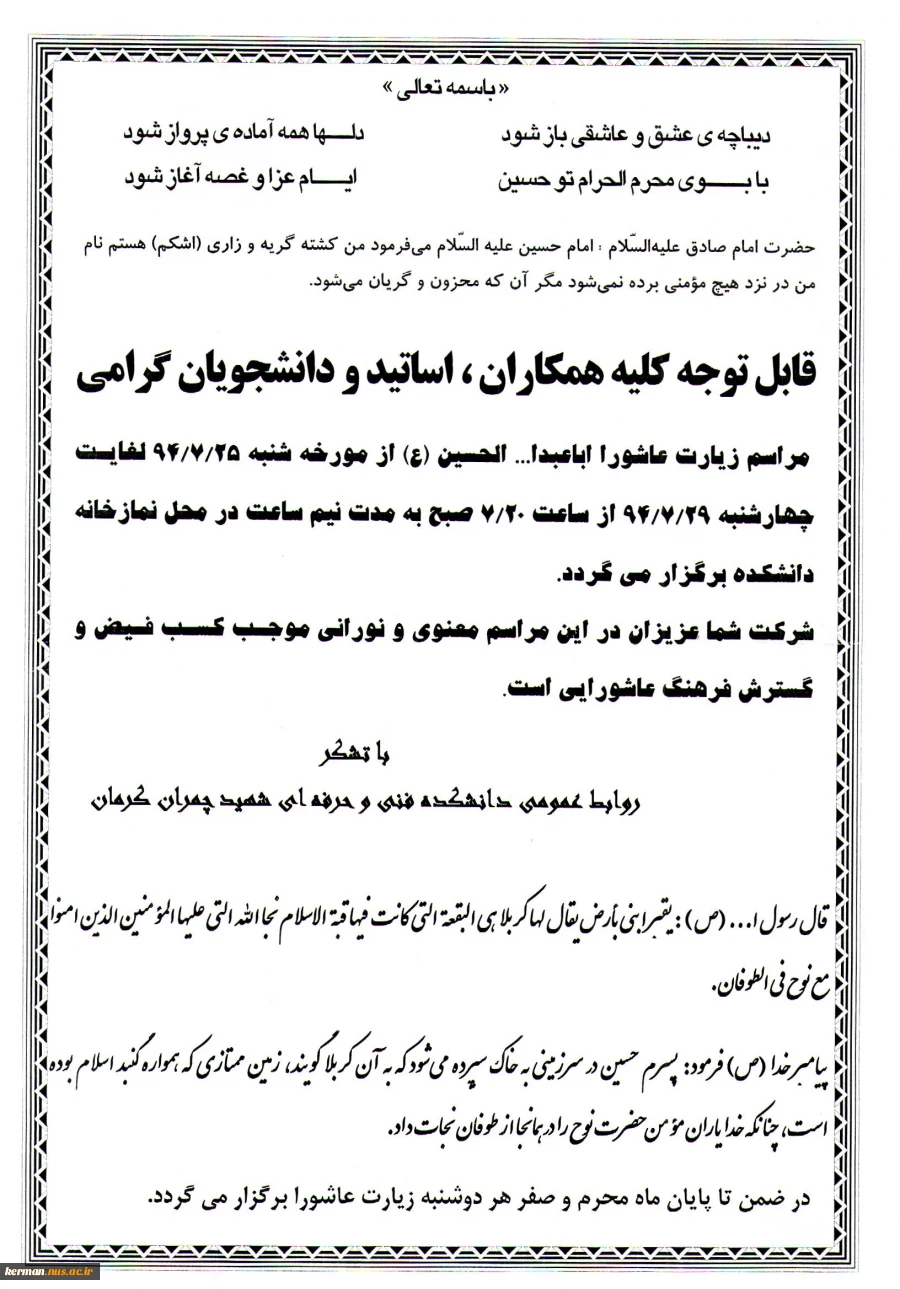 « باسمه تعالی »
دیباچه ی عشق و عاشقی باز شود دلــها همه آماده ی پرواز شود
با بــــوی محرم الحرام تو حسین ایــــام عزا و غصه آغاز شود
حضرت امام صادق علیه‌السّلام : امام حسین علیه السّلام می‌فرمود من کشته گریه و زاری (اشکم) هستم نام
من در نزد هیچ مؤمنی برده نمی‌شود مگر آن که محزون و گریان می‌شود.
قابل توجه کلیه همکاران ، اساتید و دانشجویان گرامی
مراسم زیارت عاشورا اباعبدا... الحسین (ع) از مورخه شنبه ۹۴/۷/۲۵ لغایت
چهارشنبه ۹۴/۷/۲۹ از ساعت ۷/۲۰ صبح به مدت نیم ساعت در محل نمازخانه
دانشکده برگزار می گردد.
شرکت شما عزیزان در این مراسم معنوی و نورانی موجب کسب فیض و
گسترش فرهنگ عاشورایی است.
با تشکر
روابط عمومی دانشکده فنی و حرفه ای شهید چمران کرمان
قال رسول ا... (ص) : یقبر ابنی بأرض یقال لها کربلا هی البقعة التی کانت فیها قبة الاسلام نجا الله التی علیها المؤمنین الذین امنوا
مع نوح فی الطوفان.
پیامبر خدا (ص) فرمود: پسرم حسین در سرزمینی به خاک سپرده می‌شود که به آن کربلا گویند، زمین ممتازی که همواره گنبد اسلام بوده
است، چنانکه خدا یاران مؤمن حضرت نوح را در همانجا از طوفان نجات داد.
در ضمن تا پایان ماه محرم و صفر هر دوشنبه زیارت عاشورا برگزار می گردد.
kerman.nus.ac.ir